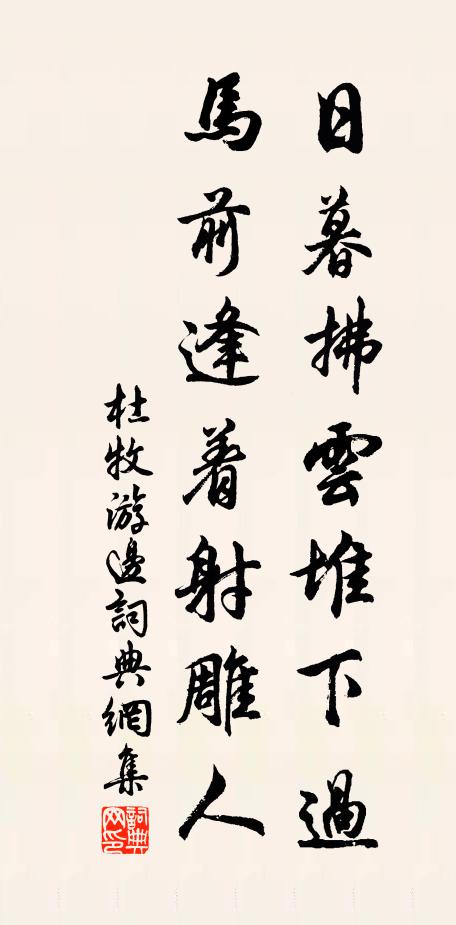 日暮拂雲堆下過
馬前逢着射雕人
杜牧游邊詞典網集
詞典網印